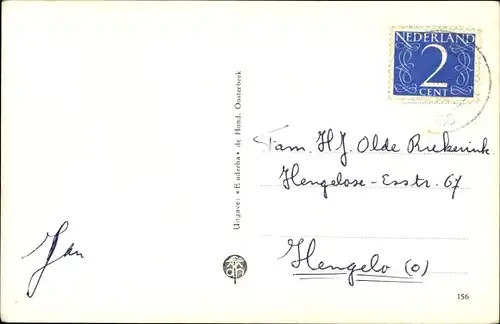 NEDERLAND
2
CENT
Fam. H.J. Olde Riekerink.
Hengelose-Esstr. 67
Hengelo (o)
Jan
Uitgave: «Enderha» de Hond, Oosterbeek
156